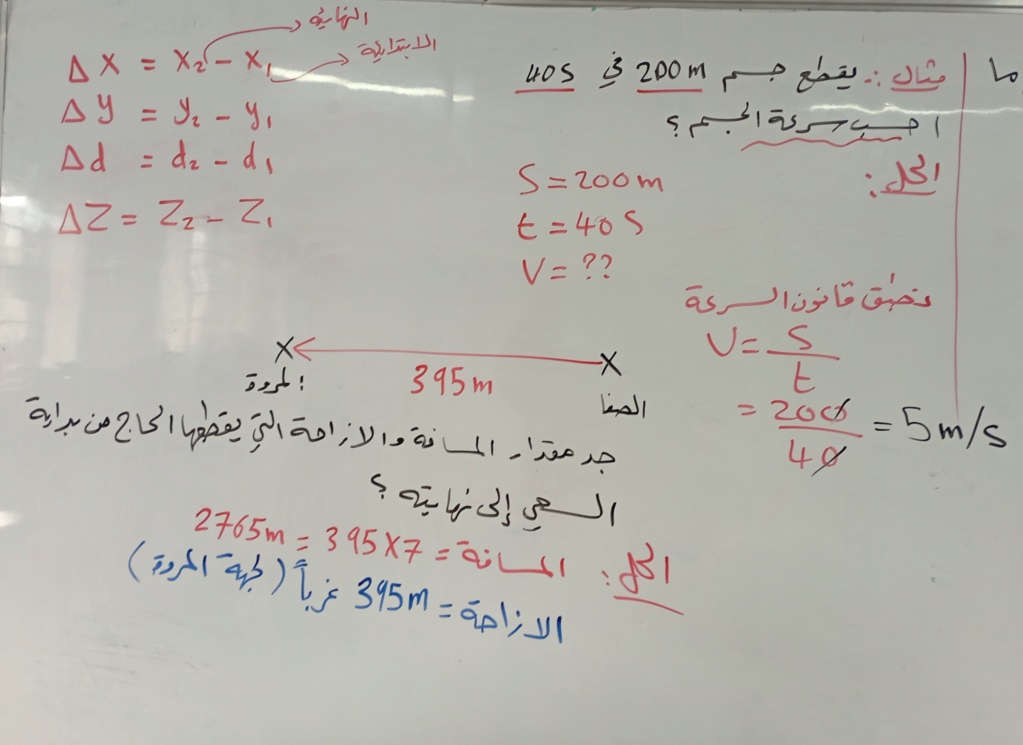 ما
مثال :- يقطع جسم 200m في 40s
احسب سرعة الجسم ؟
الحل :
S = 200m
t = 40 S
V = ??
نطبق قانون السرعة
V = S / t
= 200 / 40 = 5m/s
النهاية
الابتدائية
Δ X = X₂ - X₁
Δ y = y₂ - y₁
Δ d = d₂ - d₁
Δ Z = Z₂ - Z₁
X X
395m
الصفا
المروة
جد مقدار المسافة والازاحة التي يقطعها الحاج من بداية
السعي إلى نهايته ؟
الحل : المسافة = 395X7 = 2765m
الازاحة = 395m غرباً (لجهة المروة)